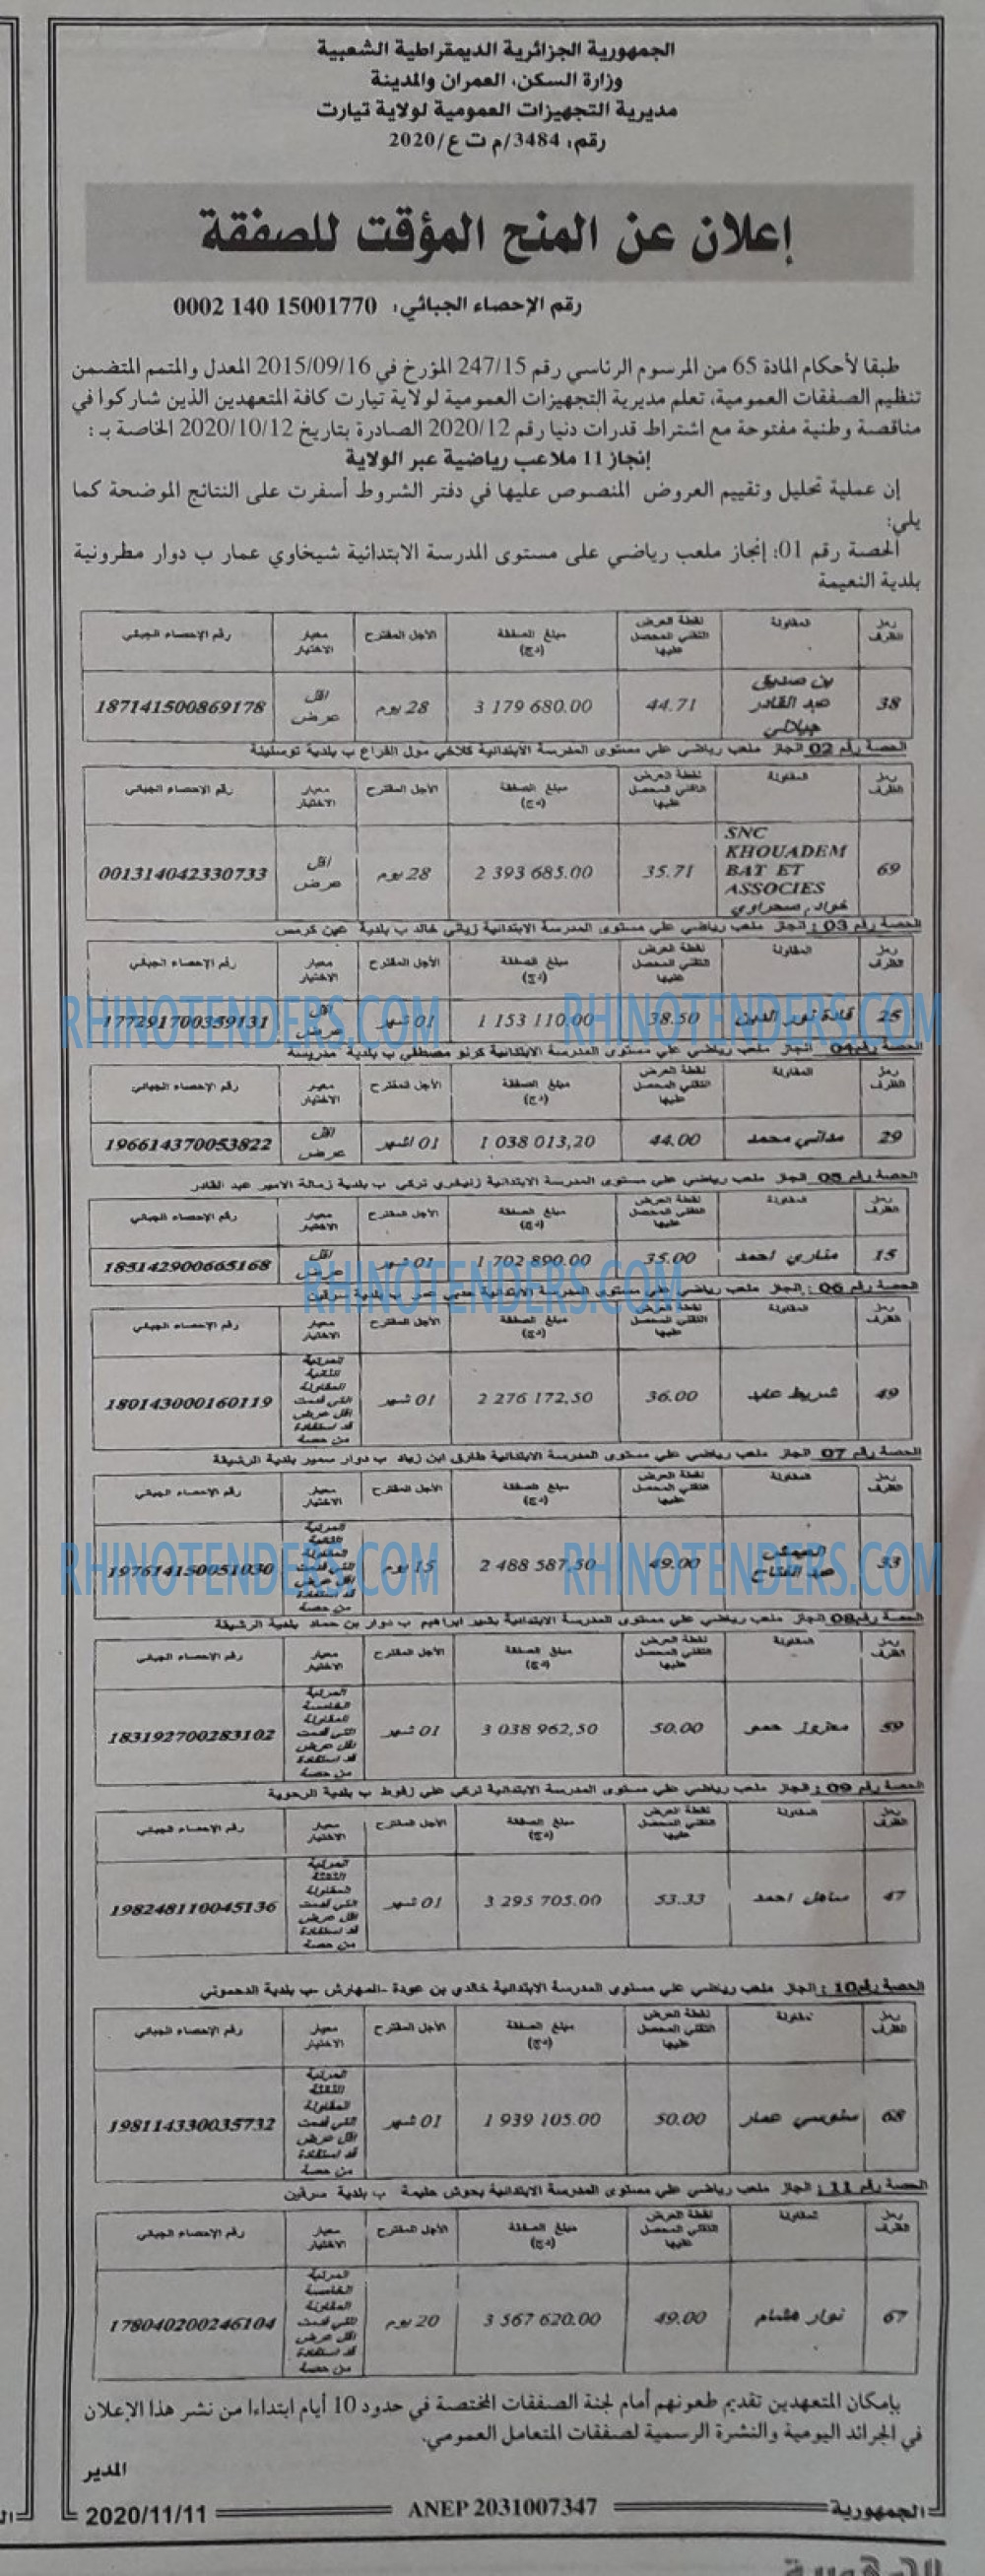 الجمهورية الجزائرية الديمقراطية الشعبية
وزارة السكن، العمران والمدينة
مديرية التجهيزات العمومية لولاية تيارت
رقم: 3484/م ت ع/2020
إعلان عن المنح المؤقت للصفقة
رقم الإحصاء الجبائي: 0002 140 15001770
طبقا لأحكام المادة 65 من المرسوم الرئاسي رقم 247/15 المؤرخ في 2015/09/16 المعدل والمتمم المتضمن
تنظيم الصفقات العمومية، تعلم مديرية التجهيزات العمومية لولاية تيارت كافة المتعهدين الذين شاركوا في
مناقصة وطنية مفتوحة مع اشتراط قدرات دنيا رقم 2020/12 الصادرة بتاريخ 2020/10/12 الخاصة بـ :
إنجاز 11 ملاعب رياضية عبر الولاية
إن عملية تحليل وتقييم العروض المنصوص عليها في دفتر الشروط أسفرت على النتائج الموضحة كما
يلي:
الحصة رقم 01: إنجاز ملعب رياضي على مستوى المدرسة الابتدائية شيخاوي عمار ب دوار مطرونية
بلدية النعيمة
رمز الظرف المقاولة نقطة العرض التقني المحصل عليها مبلغ الصفقة (دج) الأجل المقترح معيار الاختيار رقم الإحصاء الجبائي
38 بن صديق عبد القادر جيلالي 44.71 3 179 680.00 28 يوم اقل عرض 187141500869178
الحصة رقم 02 انجاز ملعب رياضي على مستوى المدرسة الابتدائية كلاخي مول الفراع ب بلدية توسنينة
رمز الظرف المقاولة نقطة العرض التقني المحصل عليها مبلغ الصفقة (دج) الأجل المقترح معيار الاختيار رقم الإحصاء الجبائي
69 SNC KHOUADEM BAT ET ASSOCIES خوادم صحراوي 35.71 2 393 685.00 28 يوم اقل عرض 001314042330733
الحصة رقم 03 : انجاز ملعب رياضي على مستوى المدرسة الابتدائية زياني خالد ب بلدية عين كرمس
رمز الظرف المقاولة نقطة العرض التقني المحصل عليها مبلغ الصفقة (دج) الأجل المقترح معيار الاختيار رقم الإحصاء الجبائي
25 قادة نور الدين 38.50 1 153 110.00 01 شهر اقل عرض 177291700359131
RHINOTENDERS.COM RHINOTENDERS.COM
الحصة رقم 04 انجاز ملعب رياضي على مستوى المدرسة الابتدائية كرنو مصطفى ب بلدية مدريسة
رمز الظرف المقاولة نقطة العرض التقني المحصل عليها مبلغ الصفقة (دج) الأجل المقترح معيار الاختيار رقم الإحصاء الجبائي
29 مداني محمد 44.00 1 038 013,20 01 اشهر اقل عرض 196614370053822
الحصة رقم 05 انجاز ملعب رياضي على مستوى المدرسة الابتدائية تركي ب بلدية زمالة الامير عبد القادر
رمز الظرف المقاولة نقطة العرض التقني المحصل عليها مبلغ الصفقة (دج) الأجل المقترح معيار الاختيار رقم الإحصاء الجبائي
15 مناري احمد 35.00 1 702 890.00 01 شهر اقل عرض 185142900665168
RHINOTENDERS.COM
الحصة رقم 06 : انجاز ملعب رياضي على مستوى المدرسة الابتدائية ب بلدية سرقين
رمز الظرف المقاولة نقطة العرض التقني المحصل عليها مبلغ الصفقة (دج) الأجل المقترح معيار الاختيار رقم الإحصاء الجبائي
49 شريط عابد 36.00 2 276 172,50 01 شهر المرتبة الثانية المقاولة التي قدمت اقل عرض قد استفادة من حصة 180143000160119
الحصة رقم 07 انجاز ملعب رياضي على مستوى المدرسة الابتدائية طارق ابن زياد ب دوار سمير بلدية الرشيقة
رمز الظرف المقاولة نقطة العرض التقني المحصل عليها مبلغ الصفقة (دج) الأجل المقترح معيار الاختيار رقم الإحصاء الجبائي
33 عبد الفتاح 49.00 2 488 587,50 15 يوم المرتبة الثانية المقاولة التي قدمت اقل عرض قد استفادة من حصة 197614150051030
RHINOTENDERS.COM RHINOTENDERS.COM
الحصة رقم 08 انجاز ملعب رياضي على مستوى المدرسة الابتدائية بشير ابراهيم ب دوار بن حماد بلدية الرشيقة
رمز الظرف المقاولة نقطة العرض التقني المحصل عليها مبلغ الصفقة (دج) الأجل المقترح معيار الاختيار رقم الإحصاء الجبائي
59 معزوز حمو 50.00 3 038 962,50 01 شهر المرتبة الخامسة المقاولة التي قدمت اقل عرض قد استفادة من حصة 183192700283102
الحصة رقم 09 : انجاز ملعب رياضي على مستوى المدرسة الابتدائية تركي علي زقوط ب بلدية الرحوية
رمز الظرف المقاولة نقطة العرض التقني المحصل عليها مبلغ الصفقة (دج) الأجل المقترح معيار الاختيار رقم الإحصاء الجبائي
47 ساهل احمد 53.33 3 295 705.00 01 شهر المرتبة الثالثة المقاولة التي قدمت اقل عرض قد استفادة من حصة 198248110045136
الحصة رقم 10 : انجاز ملعب رياضي على مستوى المدرسة الابتدائية خالدي بن عودة -المهارش -ب بلدية الدحموني
رمز الظرف المقاولة نقطة العرض التقني المحصل عليها مبلغ الصفقة (دج) الأجل المقترح معيار الاختيار رقم الإحصاء الجبائي
68 سنوسي عمار 50.00 1 939 105.00 01 شهر المرتبة الثالثة المقاولة التي قدمت اقل عرض قد استفادة من حصة 198114330035732
الحصة رقم 11 : انجاز ملعب رياضي على مستوى المدرسة الابتدائية بحوش حليمة ب بلدية سرقين
رمز الظرف المقاولة نقطة العرض التقني المحصل عليها مبلغ الصفقة (دج) الأجل المقترح معيار الاختيار رقم الإحصاء الجبائي
67 نوار هشام 49.00 3 567 620.00 20 يوم المرتبة الخامسة المقاولة التي قدمت اقل عرض قد استفادة من حصة 178040200246104
بإمكان المتعهدين تقديم طعونهم أمام لجنة الصفقات المختصة في حدود 10 أيام ابتداءا من نشر هذا الإعلان
في الجرائد اليومية والنشرة الرسمية لصفقات المتعامل العمومي.
المدير
الجمهورية ANEP 2031007347 2020/11/11